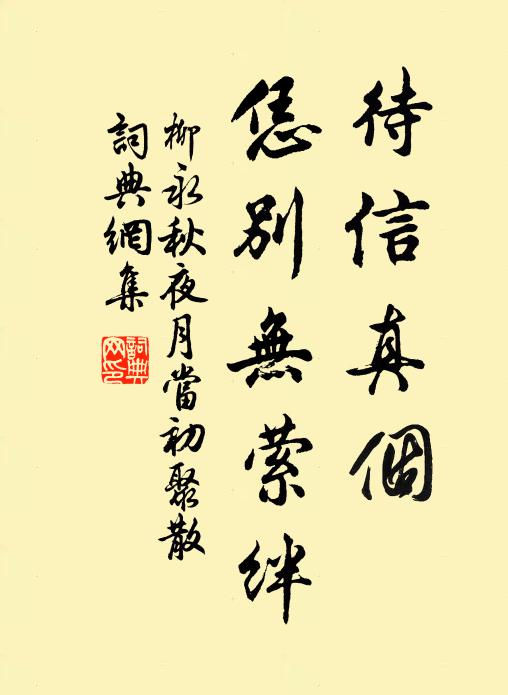 待信真個
恁別無萦絆
柳永秋夜月當初聚散
詞典網集
詞典網印